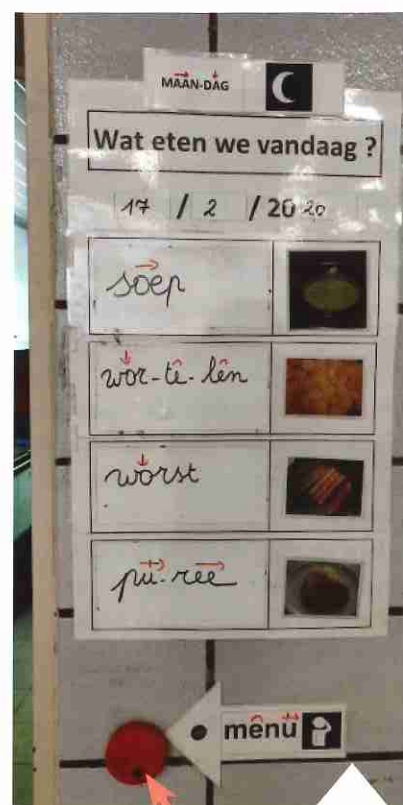 MAAN-DAG
Wat eten we vandaag ?
17 / 2 / 20 20
soep
wor-tê-lên
worst
pu-ree
mênu